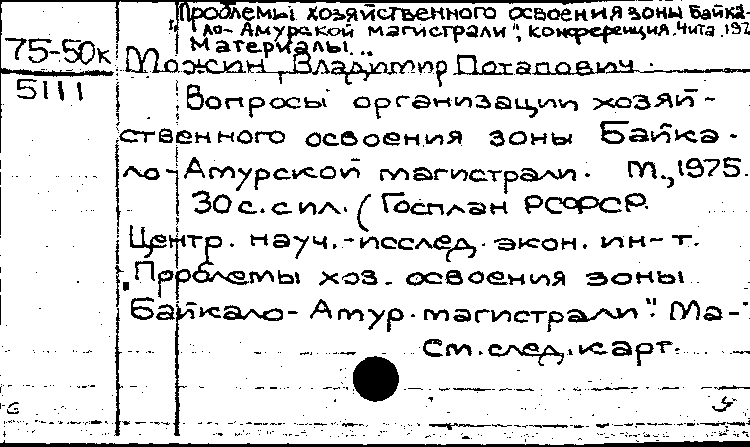 Проблемы хозяйственного освоения зоны Байка-
ло-Амурской магистрали", конференция. Чита, 197
Материалы...
75-50к Можин, Владимир Потапович.
5111
Вопросы организации хозяй-
ственного освоения зоны Байка-
ло-Амурской магистрали. М., 1975.
30 с. с ил. (Госплан РСФСР.
Центр. науч.-исслед. экон. ин-т.
"Проблемы хоз. освоения зоны
Байкало-Амур. магистрали". Ма-
См. след. карт.